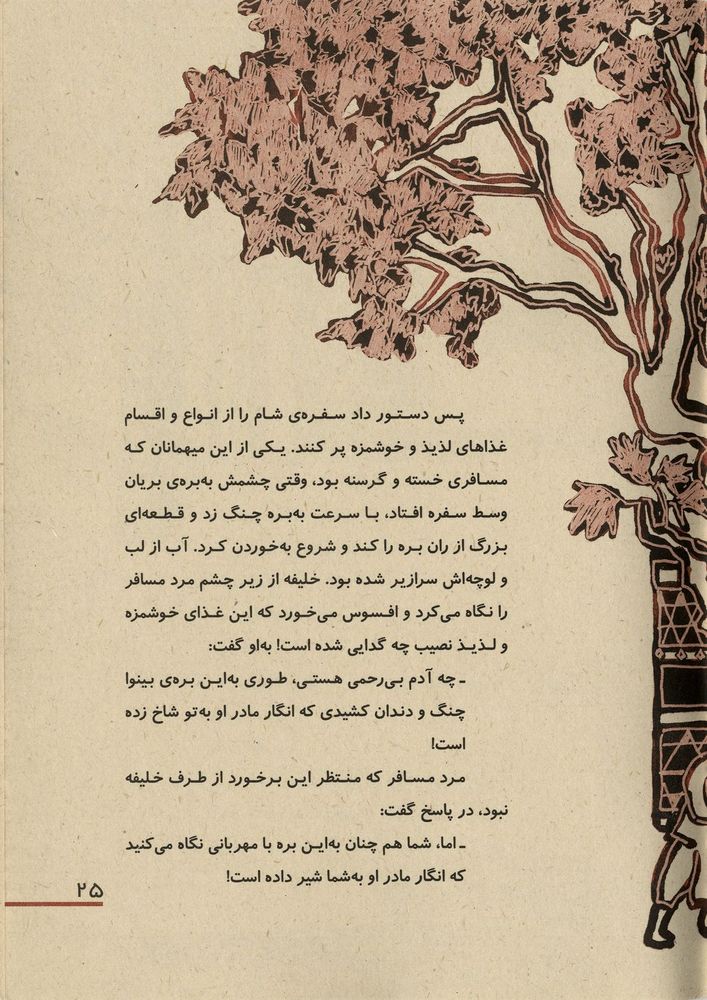 پس دستور داد سفره‌ی شام را از انواع و اقسام
غذاهای لذیذ و خوشمزه پر کنند. یکی از این میهمانان که
مسافری خسته و گرسنه بود، وقتی چشمش به‌بره‌ی بریان
وسط سفره افتاد، با سرعت به‌بره چنگ زد و قطعه‌ای
بزرگ از ران بره را کند و شروع به‌خوردن کرد. آب از لب
و لوچه‌اش سرازیر شده بود. خلیفه از زیر چشم مرد مسافر
را نگاه می‌کرد و افسوس می‌خورد که این غذای خوشمزه
و لذیذ نصیب چه گدایی شده است! به‌او گفت:
ـ چه آدم بی‌رحمی هستی، طوری به‌این بره‌ی بینوا
چنگ و دندان کشیدی که انگار مادر او به‌تو شاخ زده
است!
مرد مسافر که منتظر این برخورد از طرف خلیفه
نبود، در پاسخ گفت:
ـ اما، شما هم چنان به‌این بره با مهربانی نگاه می‌کنید
که انگار مادر او به‌شما شیر داده است!
۲۵